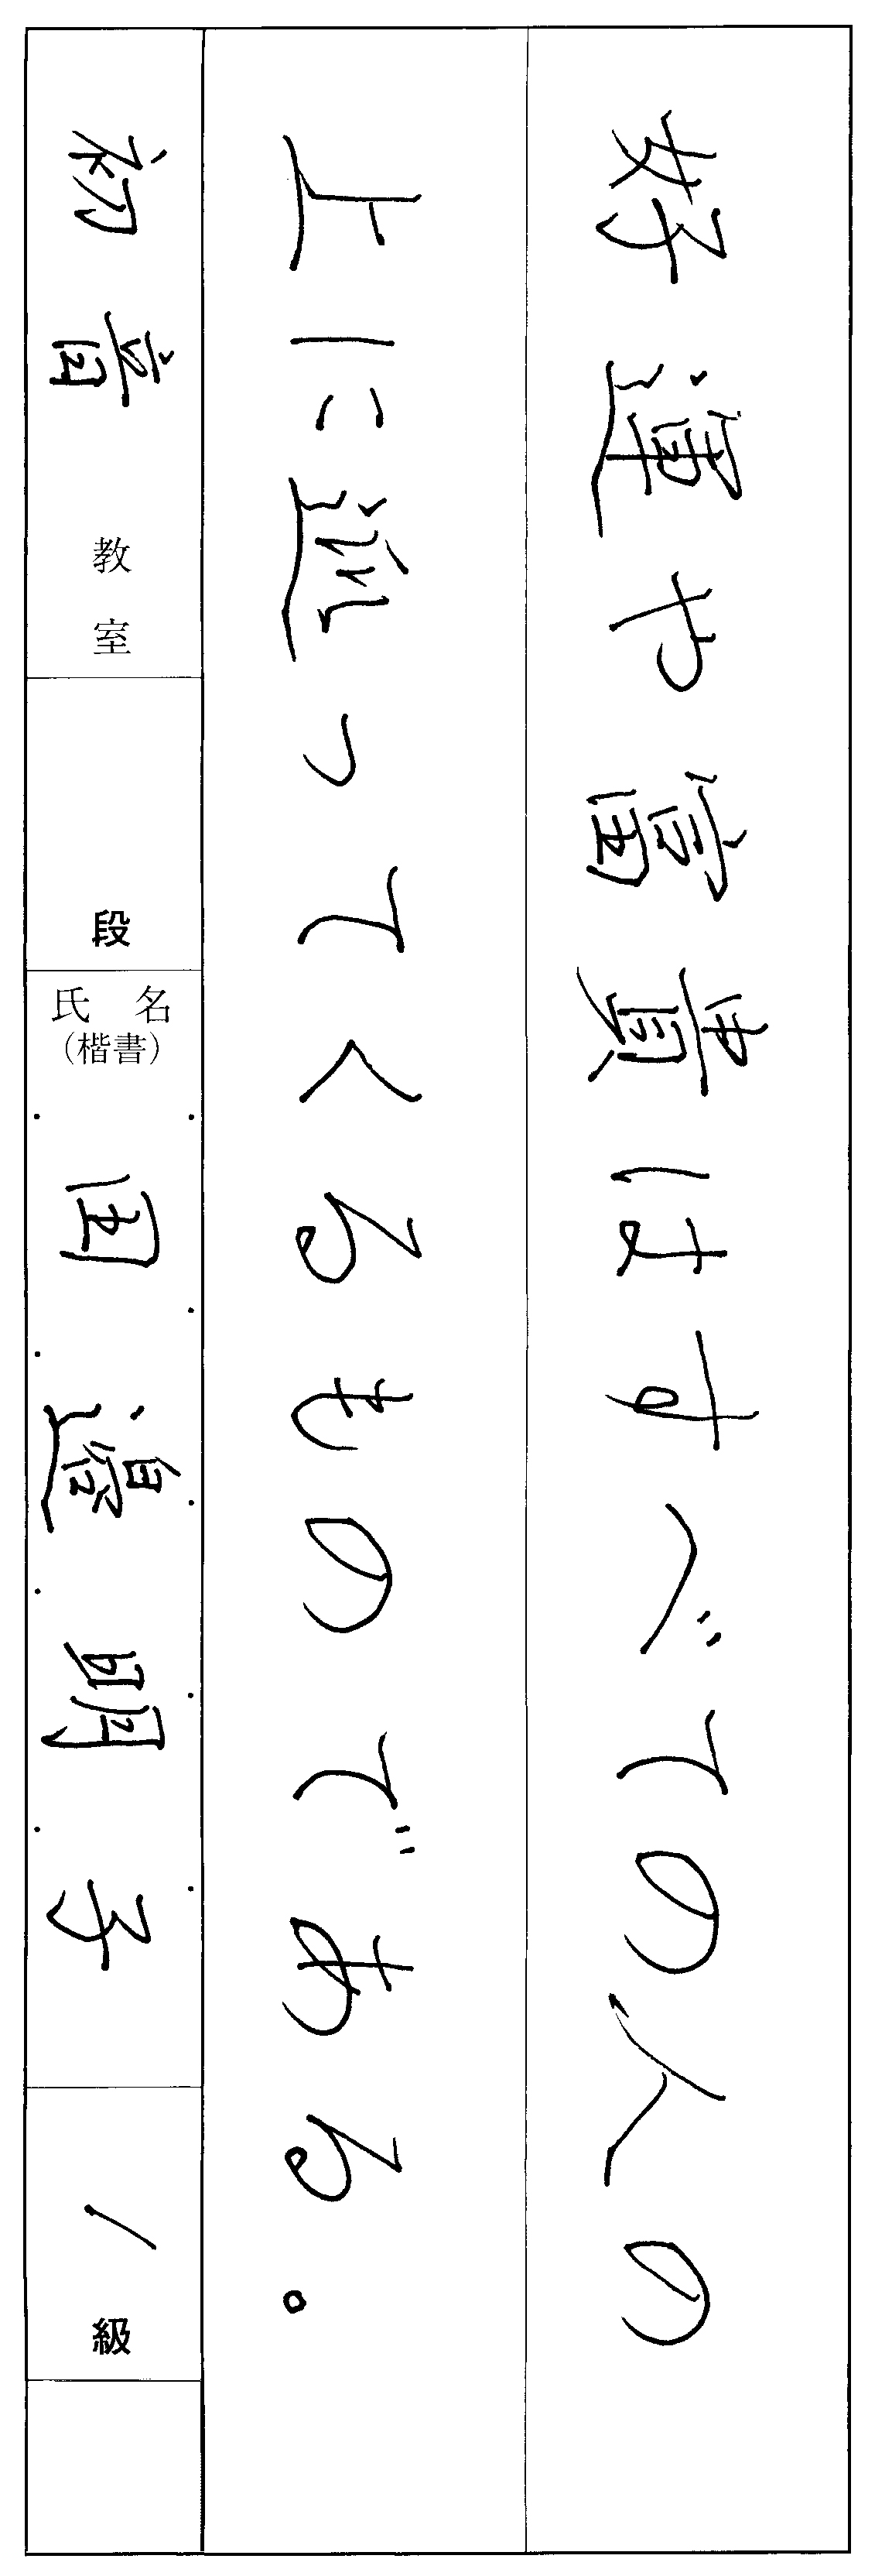 好運や富貴はすべての人の
上に巡ってくるものである。
初音 教室
段
氏名
(楷書)
田邉明子
1級